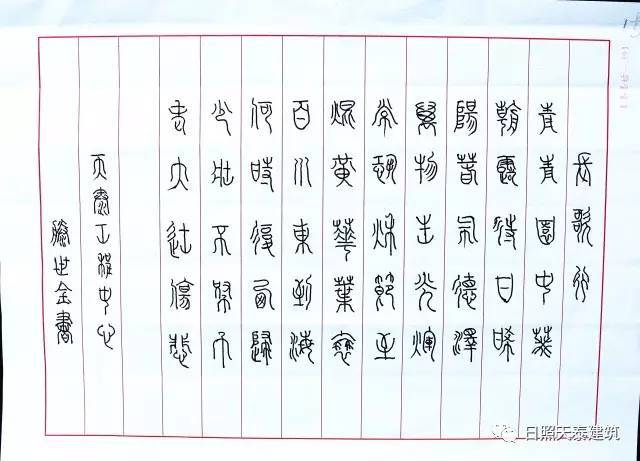 長歌行
青青園中葵
朝露待日晞
陽春布德澤
萬物生光輝
常恐秋節至
焜黃華葉衰
百川東到海
何時復西歸
少壯不努力
老大徒傷悲
天泰工程中心
滕世金書
日照天泰建筑